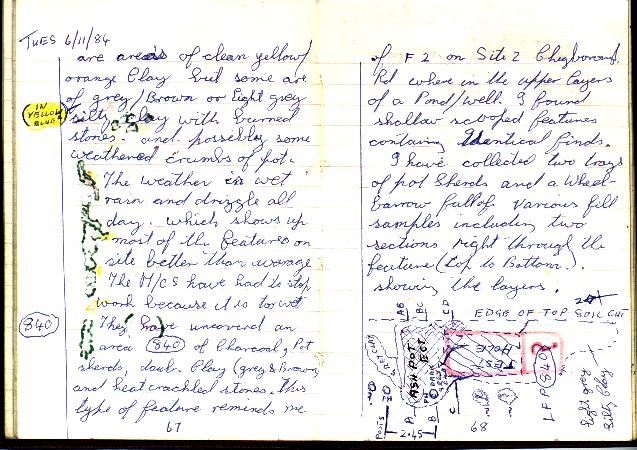 TUES 6/11/84
are areas of clean yellow/
orange Clay but some are
of grey/Brown or light grey
silty clay with burned
stones. and possibly some
weathered crumbs of pot.
IN
YELLOW
BLUE
The weather is wet
rain and drizzle all
day. which shows up
most of the features on
site better than average
The M/cs have had to stop
work because it is to wet
840
They have uncovered an
area 840 of Charcoal, Pot
sherds, daub. Clay (grey & Brown
and heat crackled stones. This
type of feature reminds me
67
of F2 on Site 2
Rd where in the upper layers
of a Pond/well. I found
shallow scooped features
containing Identical finds.
I have collected two trays
of pot Sherds and a Wheel-
barrow full of various fill
samples including two
sections right through the
feature (top to Bottom).
showing the layers.
EDGE OF TOP SOIL CUT
AB
BC
CD
ASH POT
ECT
TEST
HOLE
?
LFP 840
light grey
silty Clay
POSTS
PH
A
B
C
2.45
68